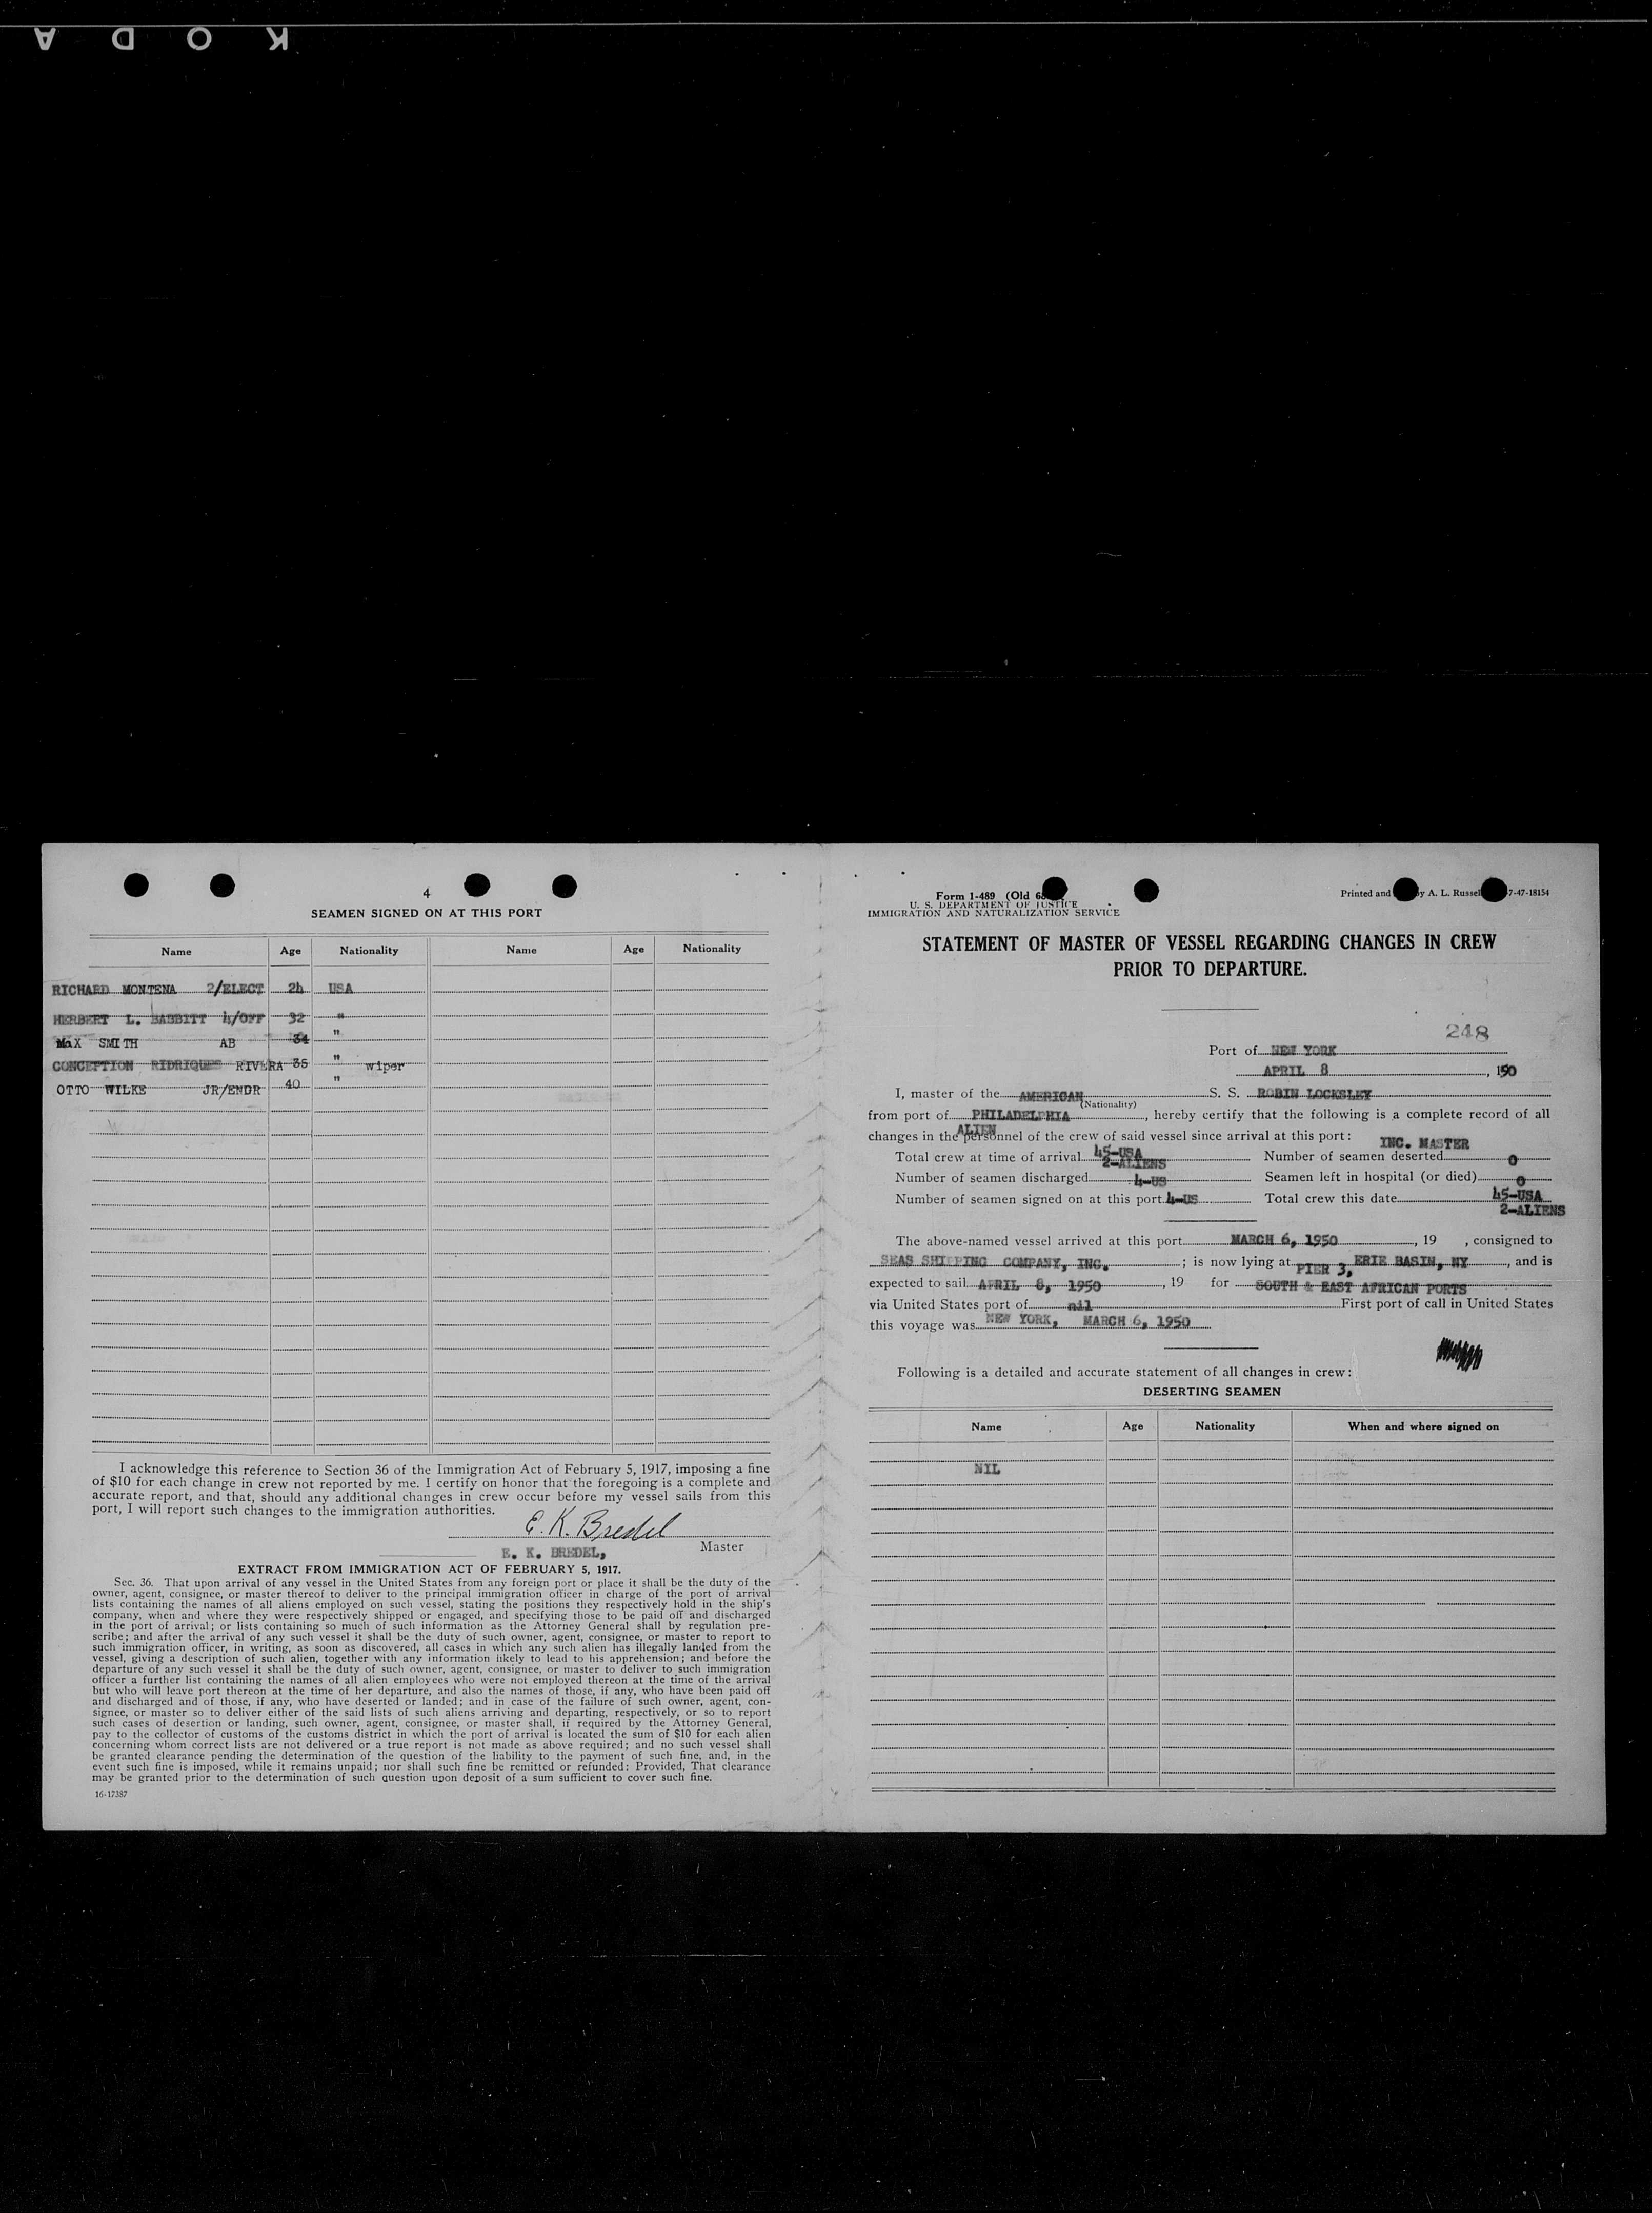 KODA
4
SEAMEN SIGNED ON AT THIS PORT
Name Age Nationality Name Age Nationality
RICHARD MONTENA 2/ELECT 24 USA
HERBERT L. BABBITT 4/OFF 32 "
MaX SMITH AB 34 "
CONCEPTION RIDRIQUES RIVERA 35 " wiper
OTTO WILKE JR/ENDR 40 "
I acknowledge this reference to Section 36 of the Immigration Act of February 5, 1917, imposing a fine
of $10 for each change in crew not reported by me. I certify on honor that the foregoing is a complete and
accurate report, and that, should any additional changes in crew occur before my vessel sails from this
port, I will report such changes to the immigration authorities.
E. K. Bredel
E. K. BREDEL, Master
EXTRACT FROM IMMIGRATION ACT OF FEBRUARY 5, 1917.
Sec. 36. That upon arrival of any vessel in the United States from any foreign port or place it shall be the duty of the
owner, agent, consignee, or master thereof to deliver to the principal immigration officer in charge of the port of arrival
lists containing the names of all aliens employed on such vessel, stating the positions they respectively hold in the ship's
company, when and where they were respectively shipped or engaged, and specifying those to be paid off and discharged
in the port of arrival; or lists containing so much of such information as the Attorney General shall by regulation pre-
scribe; and after the arrival of any such vessel it shall be the duty of such owner, agent, consignee, or master to report to
such immigration officer, in writing, as soon as discovered, all cases in which any such alien has illegally landed from the
vessel, giving a description of such alien, together with any information likely to lead to his apprehension; and before the
departure of any such vessel it shall be the duty of such owner, agent, consignee, or master to deliver to such immigration
officer a further list containing the names of all alien employees who were not employed thereon at the time of the arrival
but who will leave port thereon at the time of her departure, and also the names of those, if any, who have been paid off
and discharged and of those, if any, who have deserted or landed; and in case of the failure of such owner, agent, con-
signee, or master so to deliver either of the said lists of such aliens arriving and departing, respectively, or so to report
such cases of desertion or landing, such owner, agent, consignee, or master shall, if required by the Attorney General,
pay to the collector of customs of the customs district in which the port of arrival is located the sum of $10 for each alien
concerning whom correct lists are not delivered or a true report is not made as above required; and no such vessel shall
be granted clearance pending the determination of the question of the liability to the payment of such fine, and, in the
event such fine is imposed, while it remains unpaid; nor shall such fine be remitted or refunded: Provided, That clearance
may be granted prior to the determination of such question upon deposit of a sum sufficient to cover such fine.
16-17387
Form 1-489 (Old 68 Printed and y A. L. Russel 7-47-18154
U. S. DEPARTMENT OF JUSTICE
IMMIGRATION AND NATURALIZATION SERVICE
STATEMENT OF MASTER OF VESSEL REGARDING CHANGES IN CREW
PRIOR TO DEPARTURE.
248
Port of NEW YORK
APRIL 8, 1950
I, master of the AMERICAN S. S. ROBIN LOCKSLEY
(Nationality)
from port of PHILADELPHIA, hereby certify that the following is a complete record of all
ALIEN
changes in the personnel of the crew of said vessel since arrival at this port:
INC. MASTER
Total crew at time of arrival 45-USA 2-ALIENS Number of seamen deserted 0
Number of seamen discharged 4-US Seamen left in hospital (or died) 0
Number of seamen signed on at this port 4-US Total crew this date 45-USA
2-ALIENS
The above-named vessel arrived at this port MARCH 6, 1950, 19 , consigned to
SEAS SHIPPING COMPANY, INC. ; is now lying at PIER 3, ERIE BASIN, NY, and is
expected to sail APRIL 8, 1950, 19 for SOUTH & EAST AFRICAN PORTS
via United States port of nil First port of call in United States
this voyage was NEW YORK, MARCH 6, 1950
Following is a detailed and accurate statement of all changes in crew:
DESERTING SEAMEN
Name Age Nationality When and where signed on
NIL